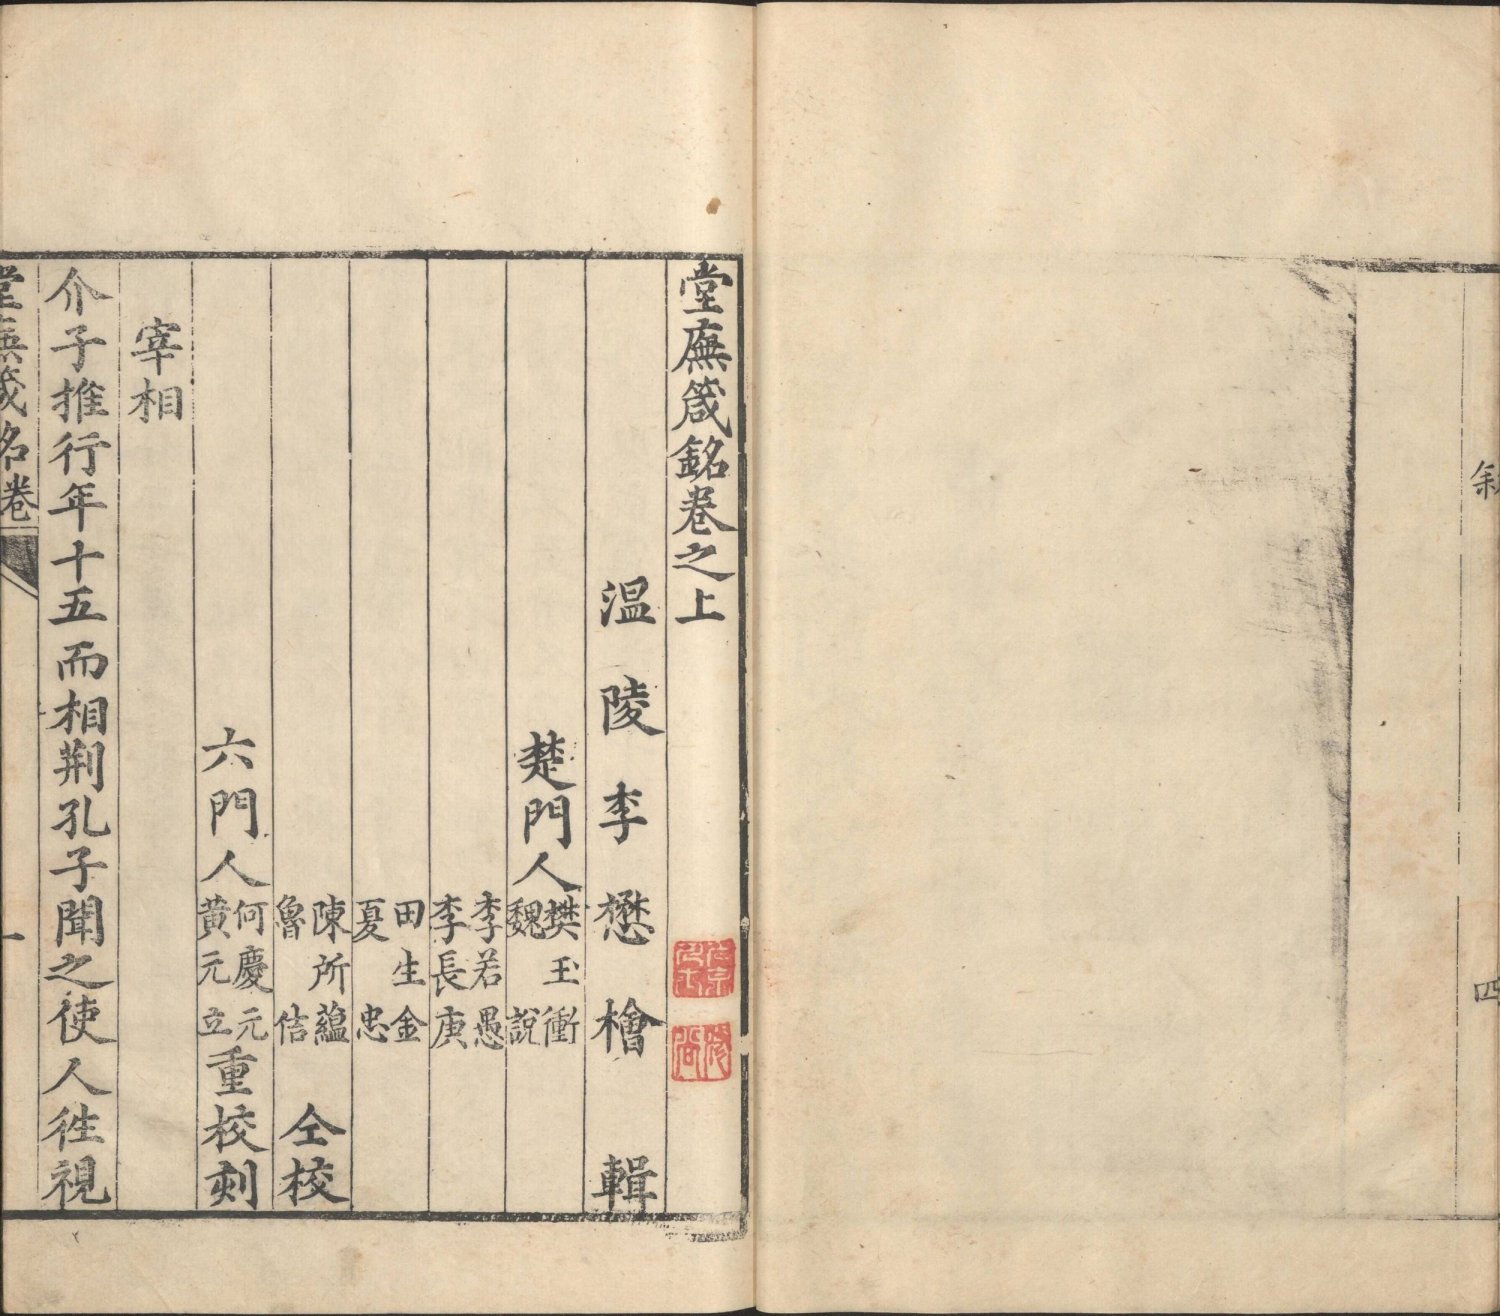 敘
四
堂廡箴銘卷之上
溫陵李懋檜輯
楚門人樊玉衝
魏說
李若愚
李長庚
田生金
夏忠
陳所蘊
魯信
仝校
六門人何慶元
黃元立
重校刻
宰相
介子推行年十五而相荆孔子聞之使人徃視
堂廡箴名卷
一